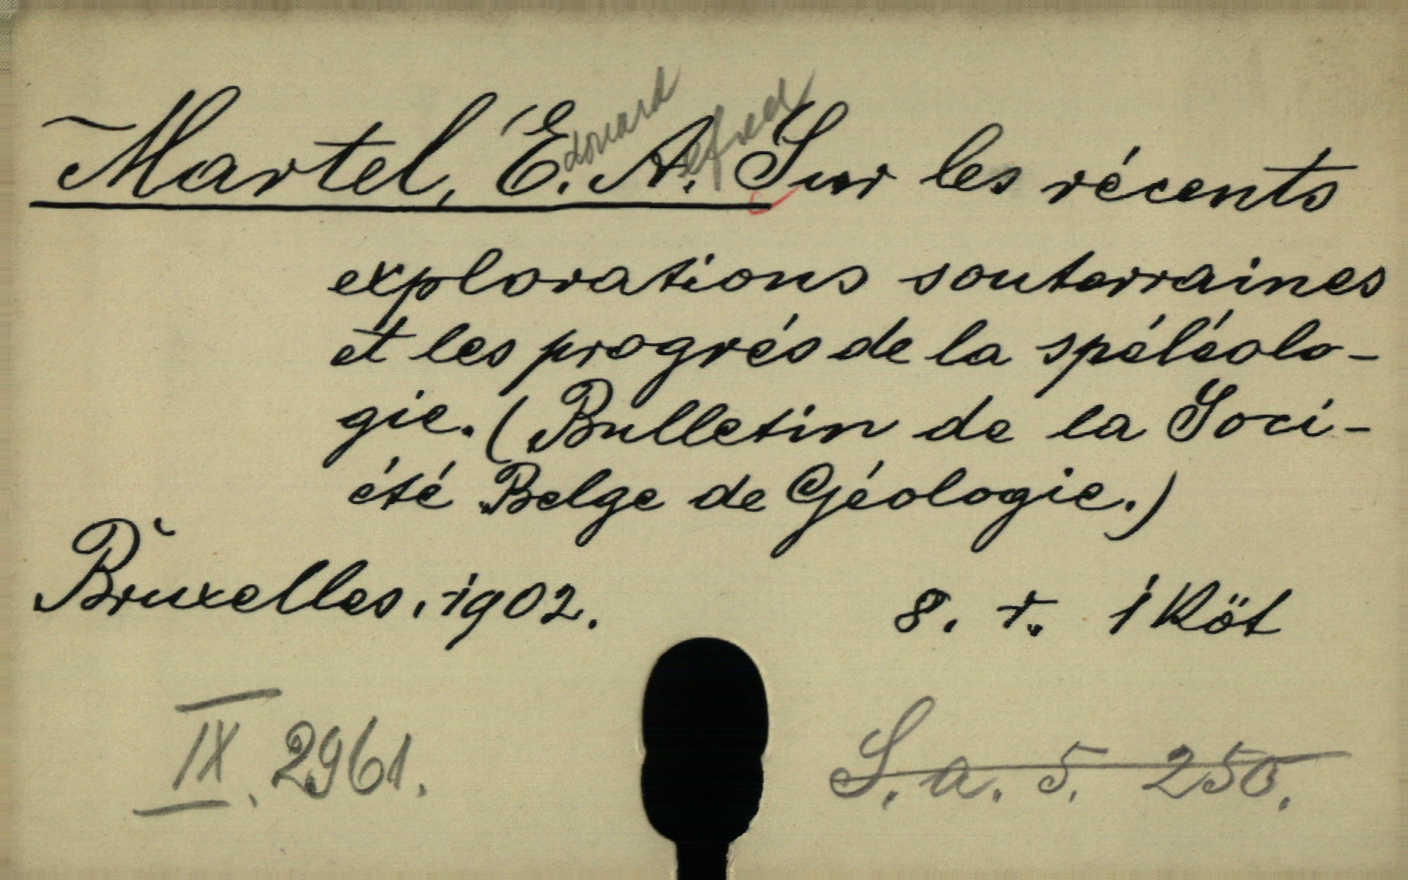 Martel, É.douard A.lfred Sur les récents
explorations souterraines
et les progrés de la spéléolo-
gie. (Bulletin de la Soci-
été Belge de Géologie.)
Bruxelles, 1902. 8. r. 1 Köt
IX. 2961. S. a. 5. 250.